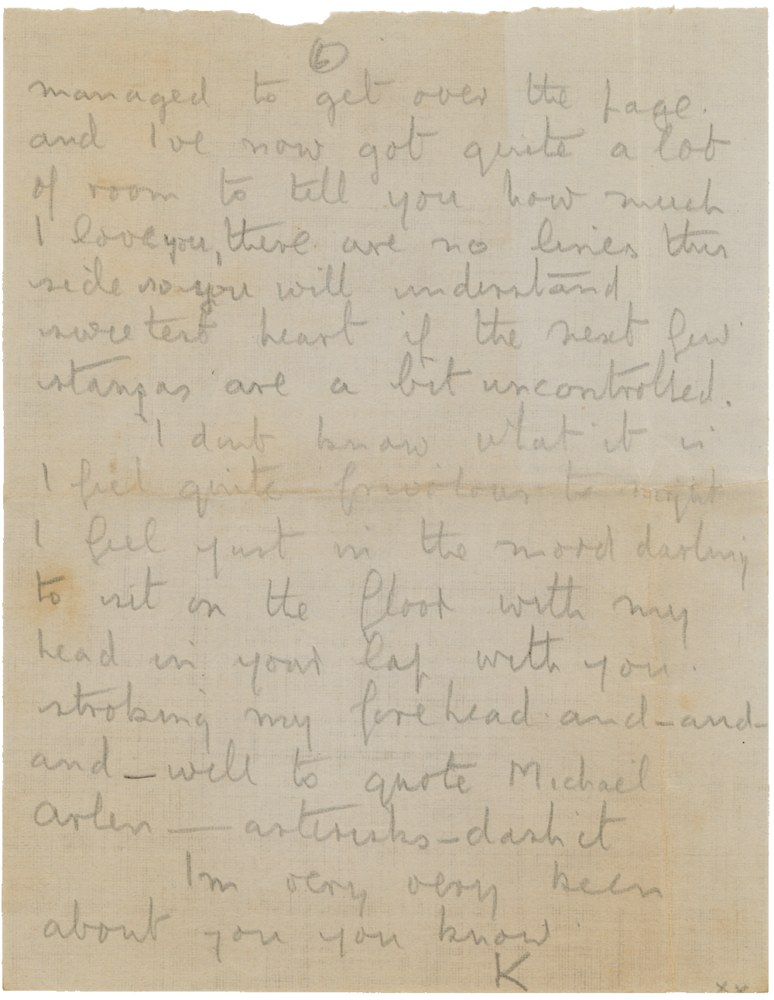 6
managed to get over the page.
and I've now got quite a lot
of room to tell you how much
I love you, there are no lines this
side so you will understand
sweetest heart if the next few
stanzas are a bit uncontrolled.
I dont know what it is
I feel quite frivolous to night
I feel just in the mood darling
to sit on the floor with my
head in your lap with you
stroking my forehead and—and—
and—well to quote Michael
Arlen — asterisks—dash it
Im very very keen
about you you know
K
xx